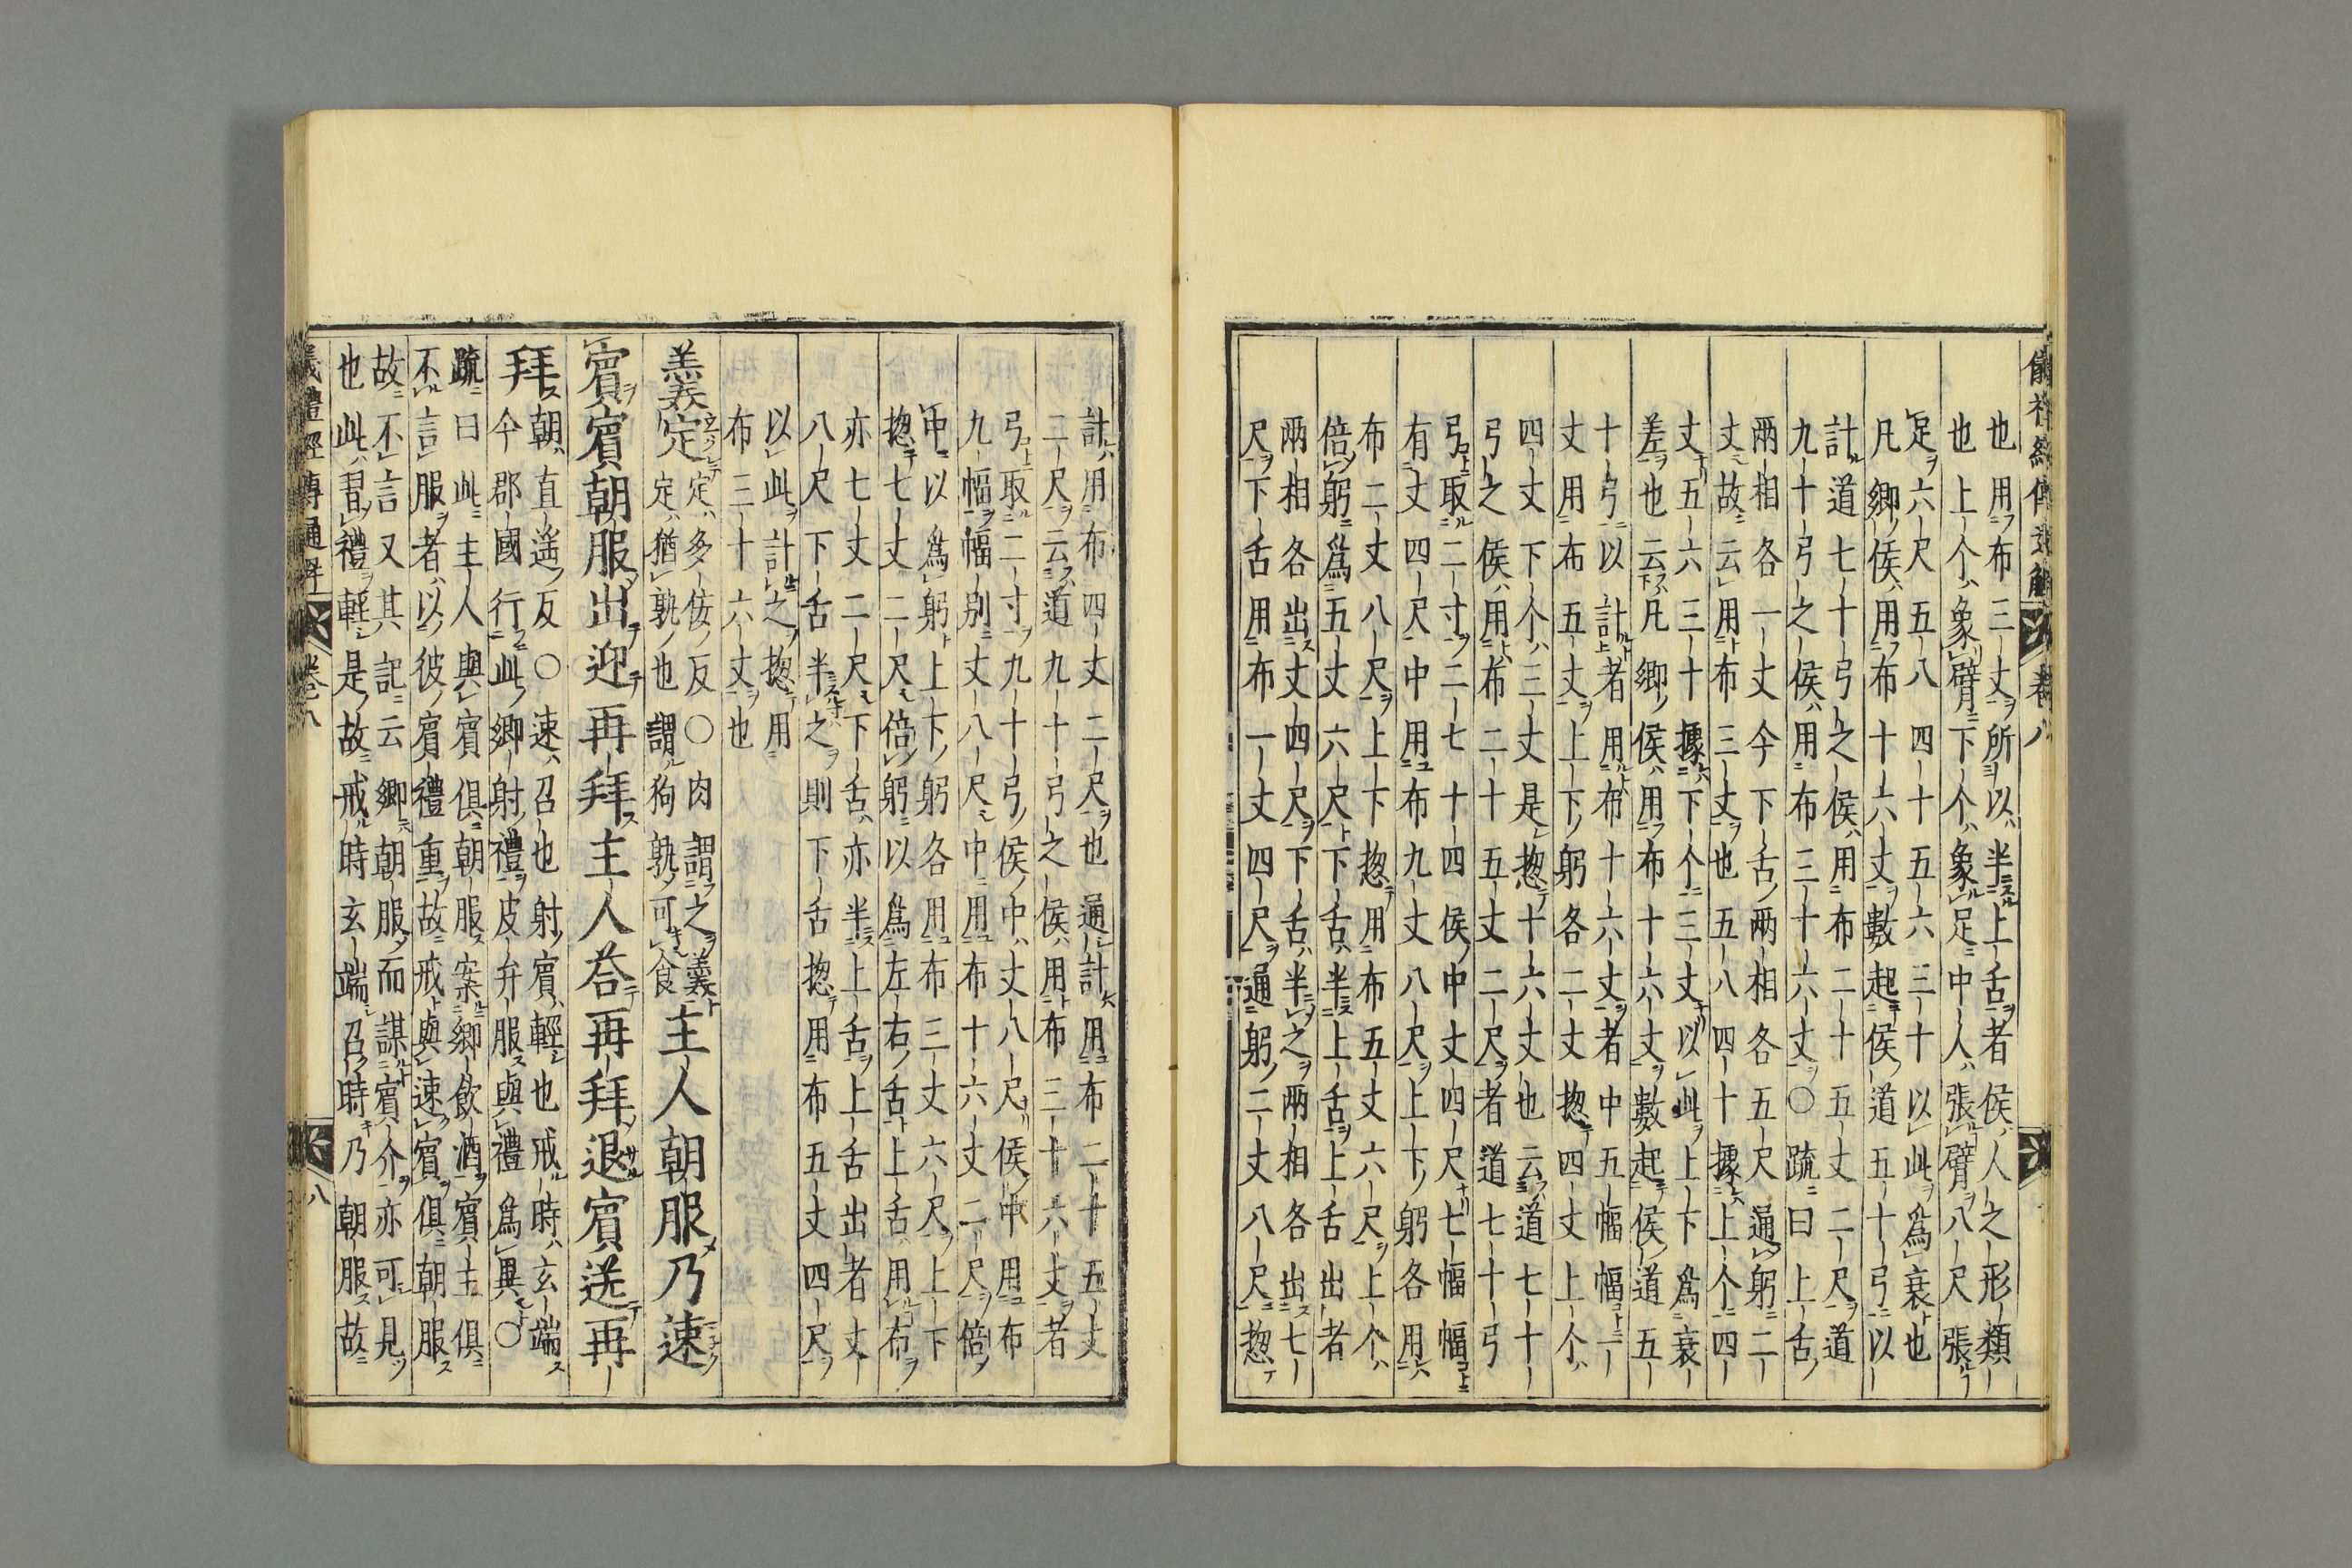 儀禮經傳通解 卷八
也用布三丈所以半上舌者侯人之形類
也上个象臂下个象足中人張臂八尺張
足六尺五八四十五六三十以此爲衰也
凡鄉侯用布十六丈數起侯道五十弓以
計道七十弓之侯用布二十五丈二尺道
九十弓之侯用布三十六丈〇疏曰上舌
兩相各一丈今下舌兩相各五尺通躬二
丈故云用布三丈也五八四十據上个四
丈五六三十據下个三丈以此上下爲衰
差也云凡鄉侯用布十六丈數起侯道五
十弓以計者用布十六丈者中五幅幅一
丈用布五丈上下躬各二丈揔四丈上个
四丈下个三丈是揔十六丈也云道七十
弓之侯用布二十五丈二尺者道七十弓
弓取二寸二七十四侯中丈四尺七幅幅
有丈四尺中用布九丈八尺上下躬各用
布二丈八尺上下揔用布五丈六尺上个
倍躬爲五丈六尺下舌半上舌上舌出者
兩相各出丈四尺下舌半之兩相各出七
尺下舌用布一丈四尺通躬二丈八尺揔
計用布四丈二尺也通計用布二十五丈
二尺云道九十弓之侯用布三十六丈者
弓取二寸九十弓侯中丈八尺侯中用布
九幅幅別丈八尺中用布十六丈二尺倍
中以爲躬上下躬各用布三丈六尺上下
揔七丈二尺倍躬以爲左右舌上舌用布
亦七丈二尺下舌亦半上舌上舌出者丈
八尺下舌半之則下舌揔用布五丈四尺
以此計之揔用
布三十六丈也
羹定
定多佞反〇肉謂之羹
定猶孰也謂狗孰可食
主人朝服乃速
賓賓朝服出迎再拜主人荅再拜退賓送再
拜
朝直遙反〇速召也射賓輕也戒時玄端
今郡國行此鄉射禮皮弁服與禮爲異〇
疏曰此主人與賓俱朝服案鄉飲酒賓主俱
不言服者以彼賓禮重故戒與速賓俱朝服
故不言又其記云鄉朝服而謀賓介亦可見
也此習禮輕是故戒時玄端召時乃朝服故
儀禮經傳通解 卷八 八